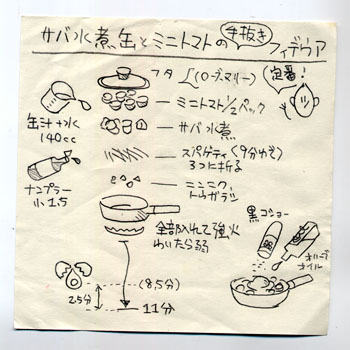 サバ水煮缶とミニトマトの手抜きフィデウア
フタ
(ローズマリー)
定番!
ミニトマト1/2パック
缶汁+水
140cc
サバ水煮
スパゲティ(9分ゆで)
3つに折る
ナンプラー
小1.5
ニンニク
トウガラシ
全部入れて強火
わいたら弱
黒コショー
オリーブ
オイル
(8.5分)
2.5分
11分